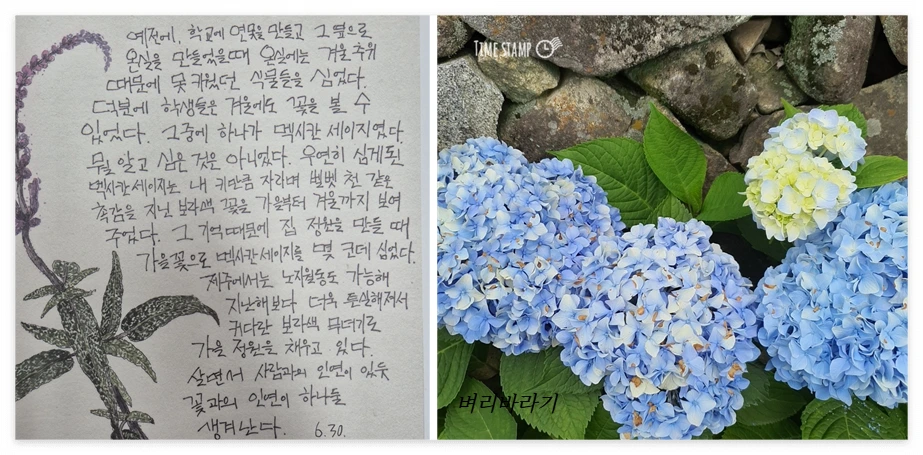 예전에, 학교에 연못을 만들고 그 옆으로
온실을 만들었을때 온실에는 겨울 추위
때문에 못 키웠던 식물들을 심었다.
덕분에 학생들은 겨울에도 꽃을 볼 수
있었다. 그중에 하나가 멕시칸 세이지였다.
뭘 알고 심은 것은 아니었다. 우연히 심게된
멕시칸 세이지는 내 키만큼 자라며 벨벳 천 같은
촉감을 지닌 보라색 꽃을 가을부터 겨울까지 보여
주었다. 그 기억때문에 집 정원을 만들 때
가을꽃으로 멕시칸 세이지를 몇 군데 심었다.
제주에서는 노지월동도 가능해
지난해보다 더욱 튼실해져서
커다란 보라색 무더기로
가을 정원을 채우고 있다.
살면서 사람과의 인연이 있듯
꽃과의 인연이 하나둘
생겨난다. 6.30.
TIME STAMP
벼리바라기